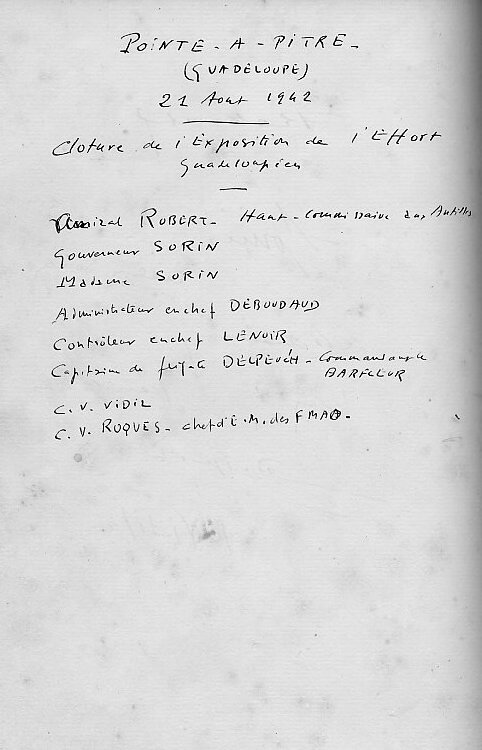 POINTE - A - PITRE -
(GUADELOUPE)
21 Aout 1942
Cloture de l'Exposition de l'Effort
Guadeloupéen
Amiral ROBERT - Haut-Commissaire aux Antilles
Gouverneur SORIN
Madame SORIN
Administrateur en chef DEBOUDAUD
Contrôleur en chef LENOIR
Capitaine de frégate DELPEUCH - Commandant le
BARFLEUR
C. V. VIDIL
C. V. ROQUES - chef d'E.M. des FMAO -